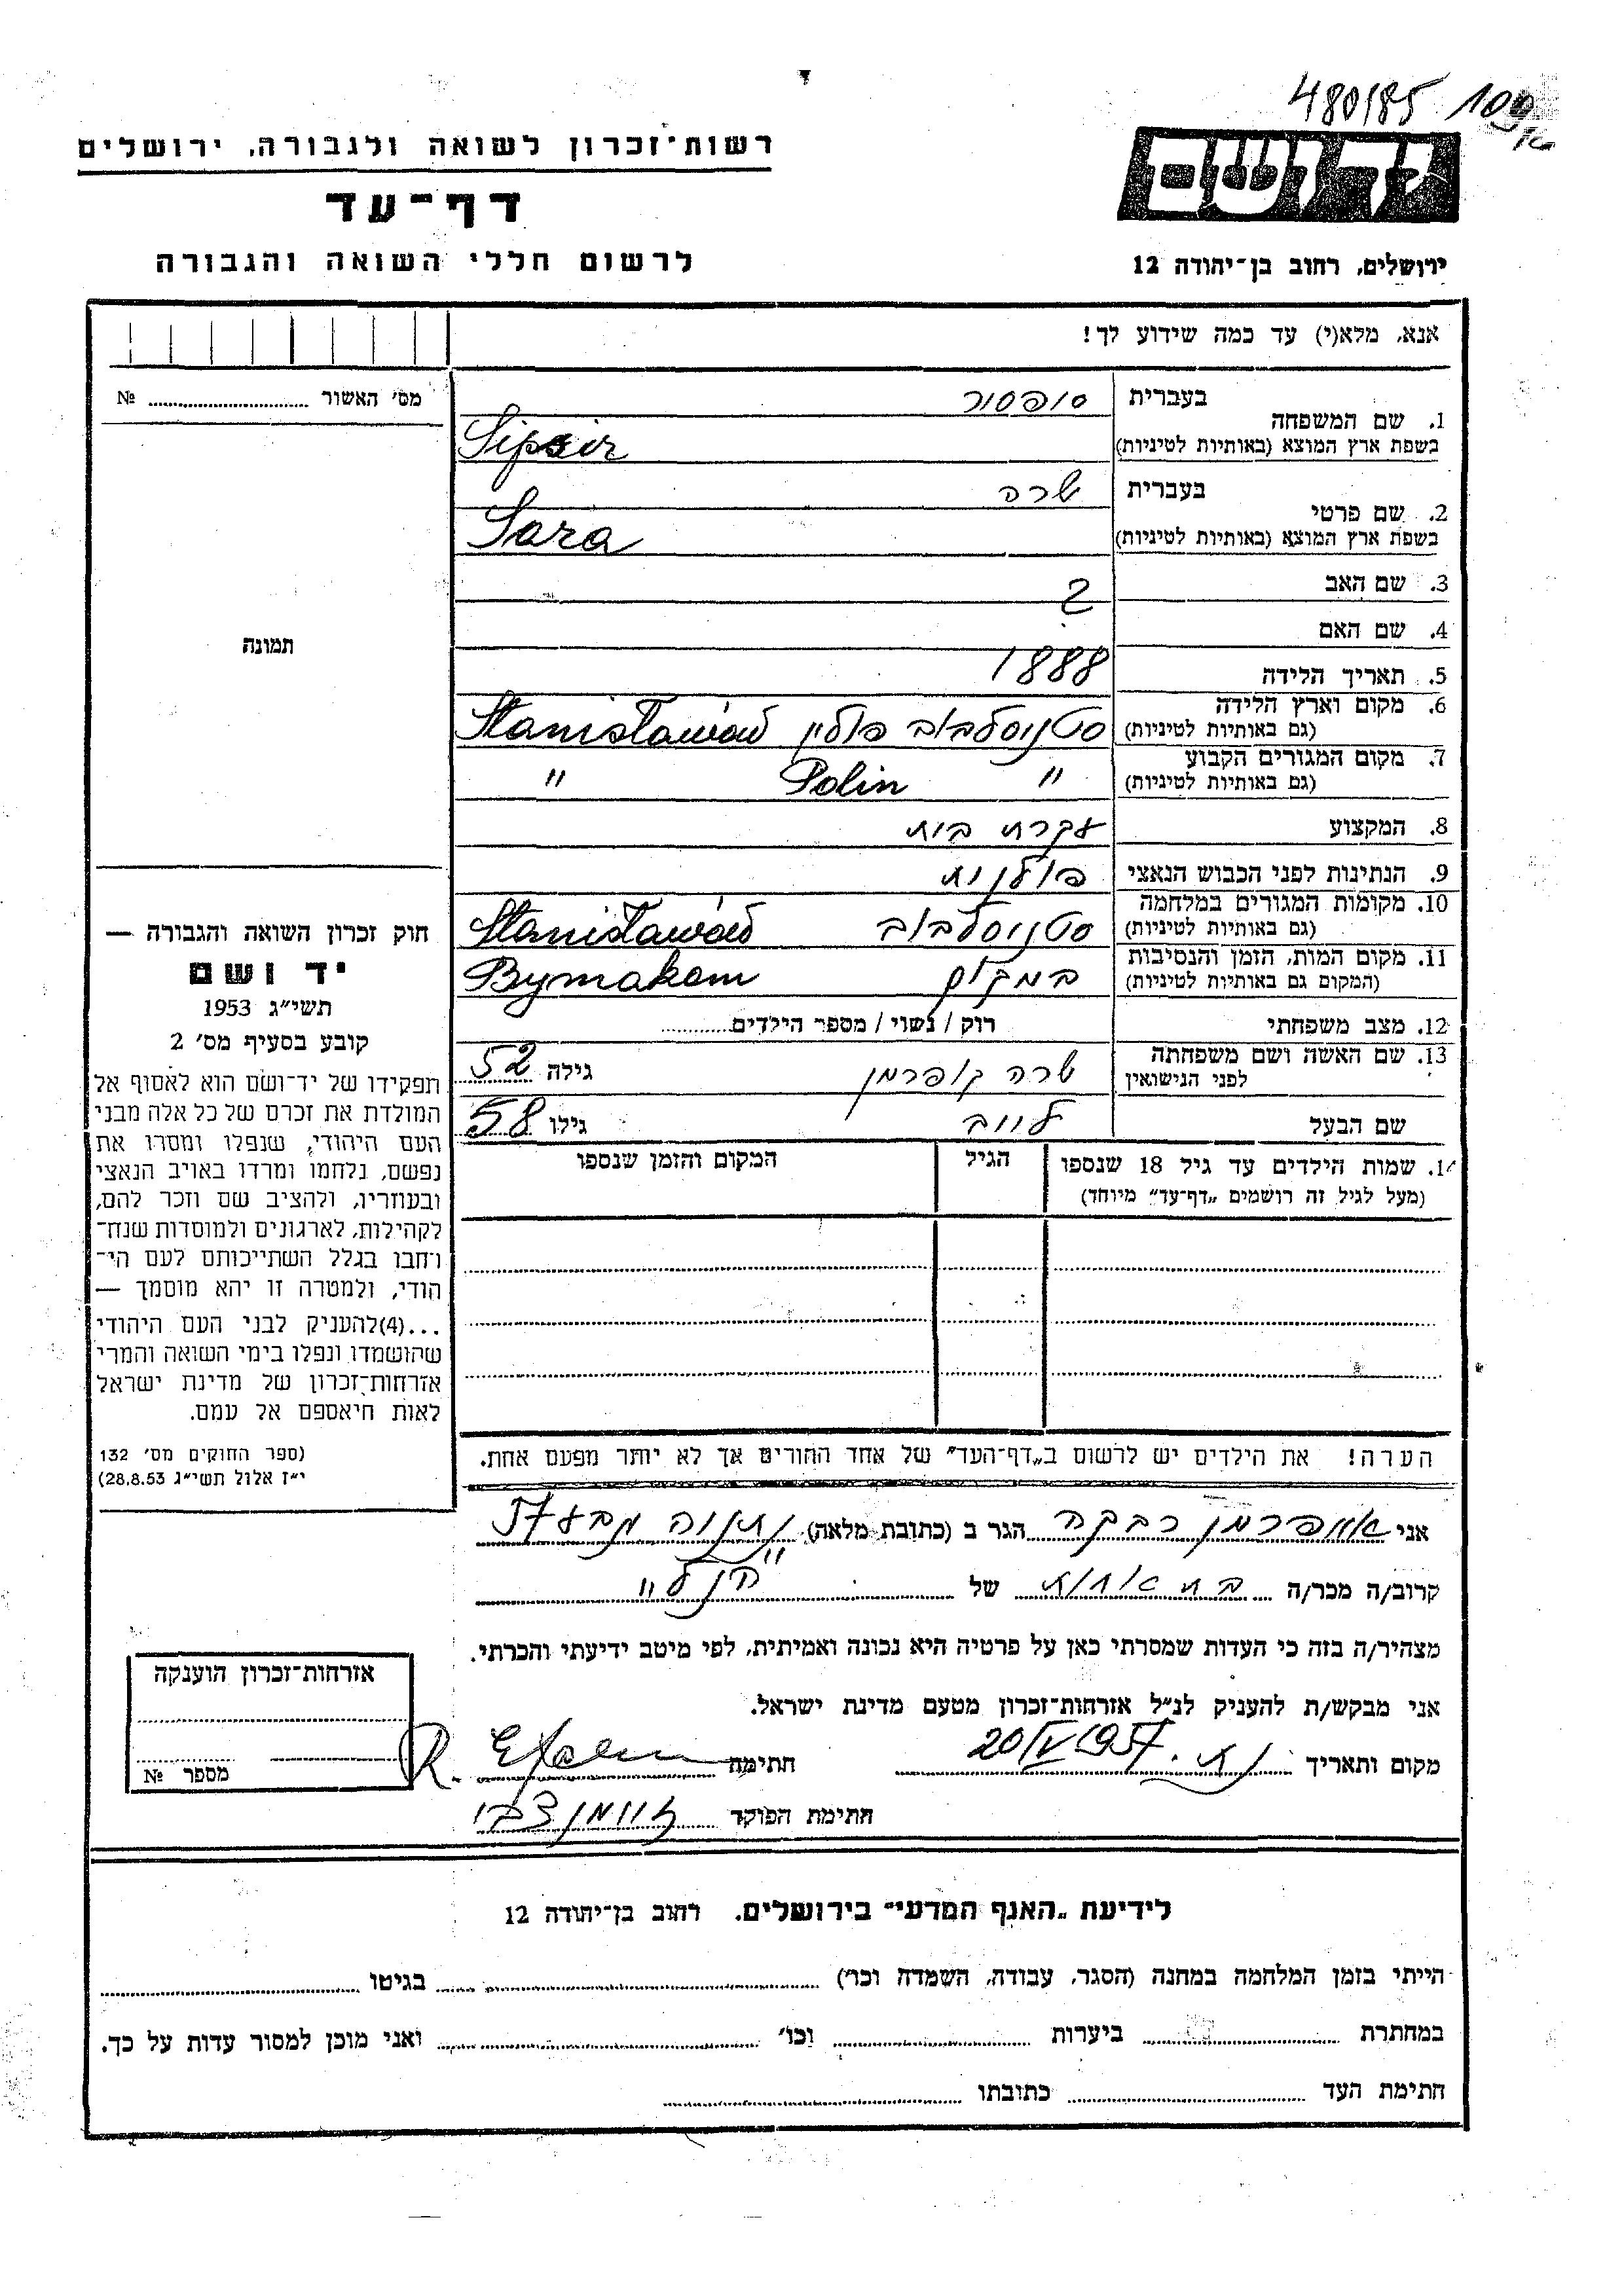 480/85 109
רשות־זכרון לשואה ולגבורה, ירושלים
דף־עד
לרשום חללי השואה והגבורה
יד ושם
ירושלים, רחוב בן־יהודה 12
אנא, מלא(י) עד כמה שידוע לך!
מס׳ האשור № 
תמונה
בעברית
1. שם המשפחה
בשפת ארץ המוצא (באותיות לטיניות)
סופסור
Sipsir
בעברית שרה
2. שם פרטי
בשפת ארץ המוצא (באותיות לטיניות)
Sara
3. שם האב ?
4. שם האם
5. תאריך הלידה 1888
6. מקום וארץ הלידה
(גם באותיות לטיניות) סטניסלבוב פולין Stanisławów
7. מקום המגורים הקבוע
(גם באותיות לטיניות) " Polin "
8. המקצוע עקרת בית
9. הנתינות לפני הכבוש הנאצי פולנית
10. מקומות המגורים במלחמה
(גם באותיות לטיניות) סטניסלבוב Stanisławów
11. מקום המות, הזמן והנסיבות
(המקום גם באותיות לטיניות) במקום Bymakom
12. מצב משפחתי רוק / נשוי / מספר הילדים
13. שם האשה ושם משפחתה
לפני הנישואין שרה קופרמן גילה 52
שם הבעל לייב גילו 58
14. שמות הילדים עד גיל 18 שנספו
(מעל לגיל זה רושמים „דף־עד״ מיוחד)
הגיל
המקום והזמן שנספו
הערה! את הילדים יש לרשום ב„דף־העד״ של אחד ההורים אך לא יותר מפעם אחת.
חוק זכרון השואה והגבורה —
יד ושם
תשי״ג 1953
קובע בסעיף מס׳ 2
תפקידו של יד־ושם הוא לאסוף אל
המולדת את זכרם של כל אלה מבני
העם היהודי, שנפלו ומסרו את
נפשם, נלחמו ומרדו באויב הנאצי
ובעוזריו, ולהציב שם וזכר להם,
לקהילות, לארגונים ולמוסדות שנח־
רחבו בגלל השתייכותם לעם הי־
הודי, ולמטרה זו יהא מוסמך —
...(4)להעניק לבני העם היהודי
שהושמדו ונפלו בימי השואה והמרי
אזרחות־זכרון של מדינת ישראל
לאות היאספם אל עמם.
(ספר החוקים מס׳ 132
י״ז אלול תשי״ג 28.8.53)
אני רבקה הגר ב (כתובת מלאה)
קרוב/ה מכר/ה בת אחות של הנ"ל
מצהיר/ה בזה כי העדות שמסרתי כאן על פרטיה היא נכונה ואמיתית, לפי מיטב ידיעתי והכרתי.
אני מבקש/ת להעניק לנ״ל אזרחות־זכרון מטעם מדינת ישראל.
מקום ותאריך 20/V 1957 חתימה
חתימת הפוקד
אזרחות־זכרון הוענקה
מספר №
לידיעת „האגף המדעי״ בירושלים. רחוב בן־יהודה 12
הייתי בזמן המלחמה במחנה (הסגר, עבודה, השמדה וכו׳) בגיטו
במחתרת ביערות וכו׳ ואני מוכן למסור עדות על כך.
חתימת העד כתובתו